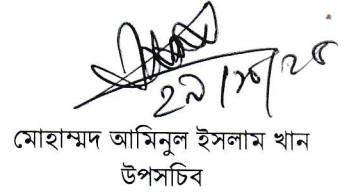 মোহাম্মদ আমিনুল ইসলাম খান
উপসচিব